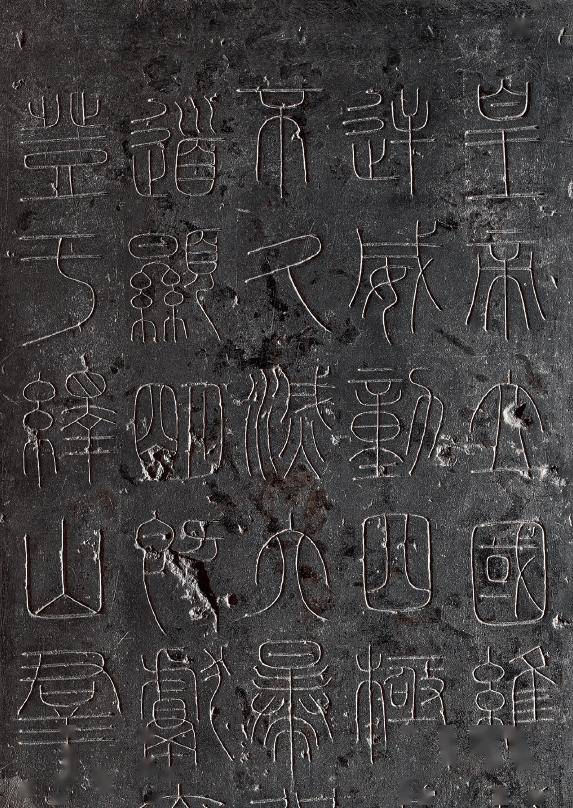 皇帝立國維
逆威動四極
不久滅六暴
道顯明既獻
登于繹山群